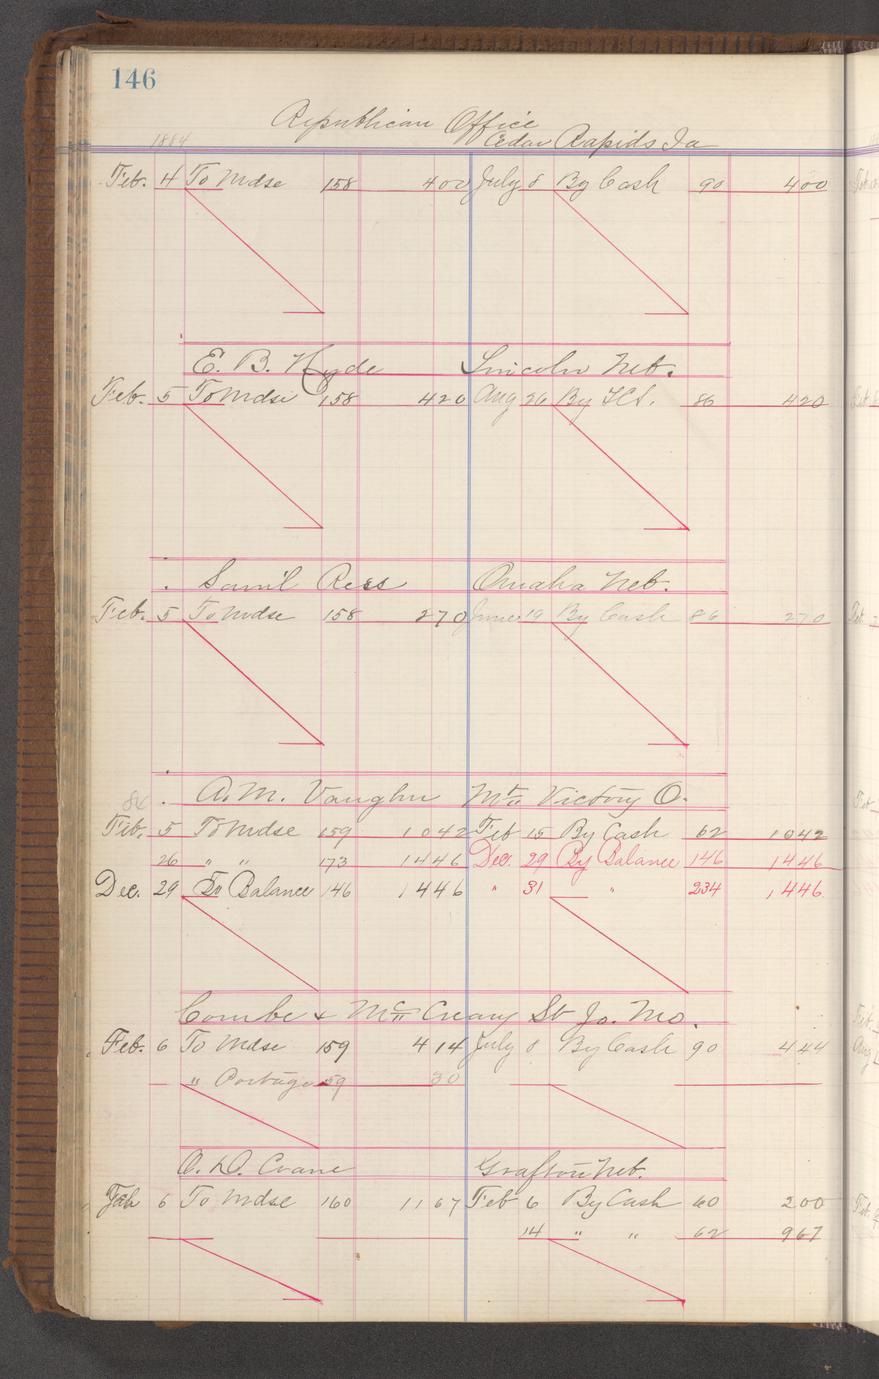 146
Republican Office
1884 Cedar Rapids Ia
Feb. 4 To Mdse 158 400 July 8 By Cash 90 400
E. B. Hyde Lincoln Neb.
Feb. 5 To Mdse 158 420 Aug 26 By 86 420
Sam'l Rees Omaha Neb.
Feb. 5 To Mdse 158 270 June 19 By Cash 86 270
A. M. Vaughn Mt Victory O.
Feb. 5 To Mdse 159 1042 Feb 15 By Cash 62 1042
26 " " 173 1446 Dec. 29 By Balance 146 1446
Dec. 29 To Balance 146 1446 " 31 " 234 1446
Combe & McCreary St Jo. Mo.
Feb. 6 To Mdse 159 414 July 8 By Cash 90 444
" Postage 59 30
O. D. Crane Grafton Neb.
6 To Mdse 160 1167 Feb 6 By Cash 60 200
14 " " 62 967